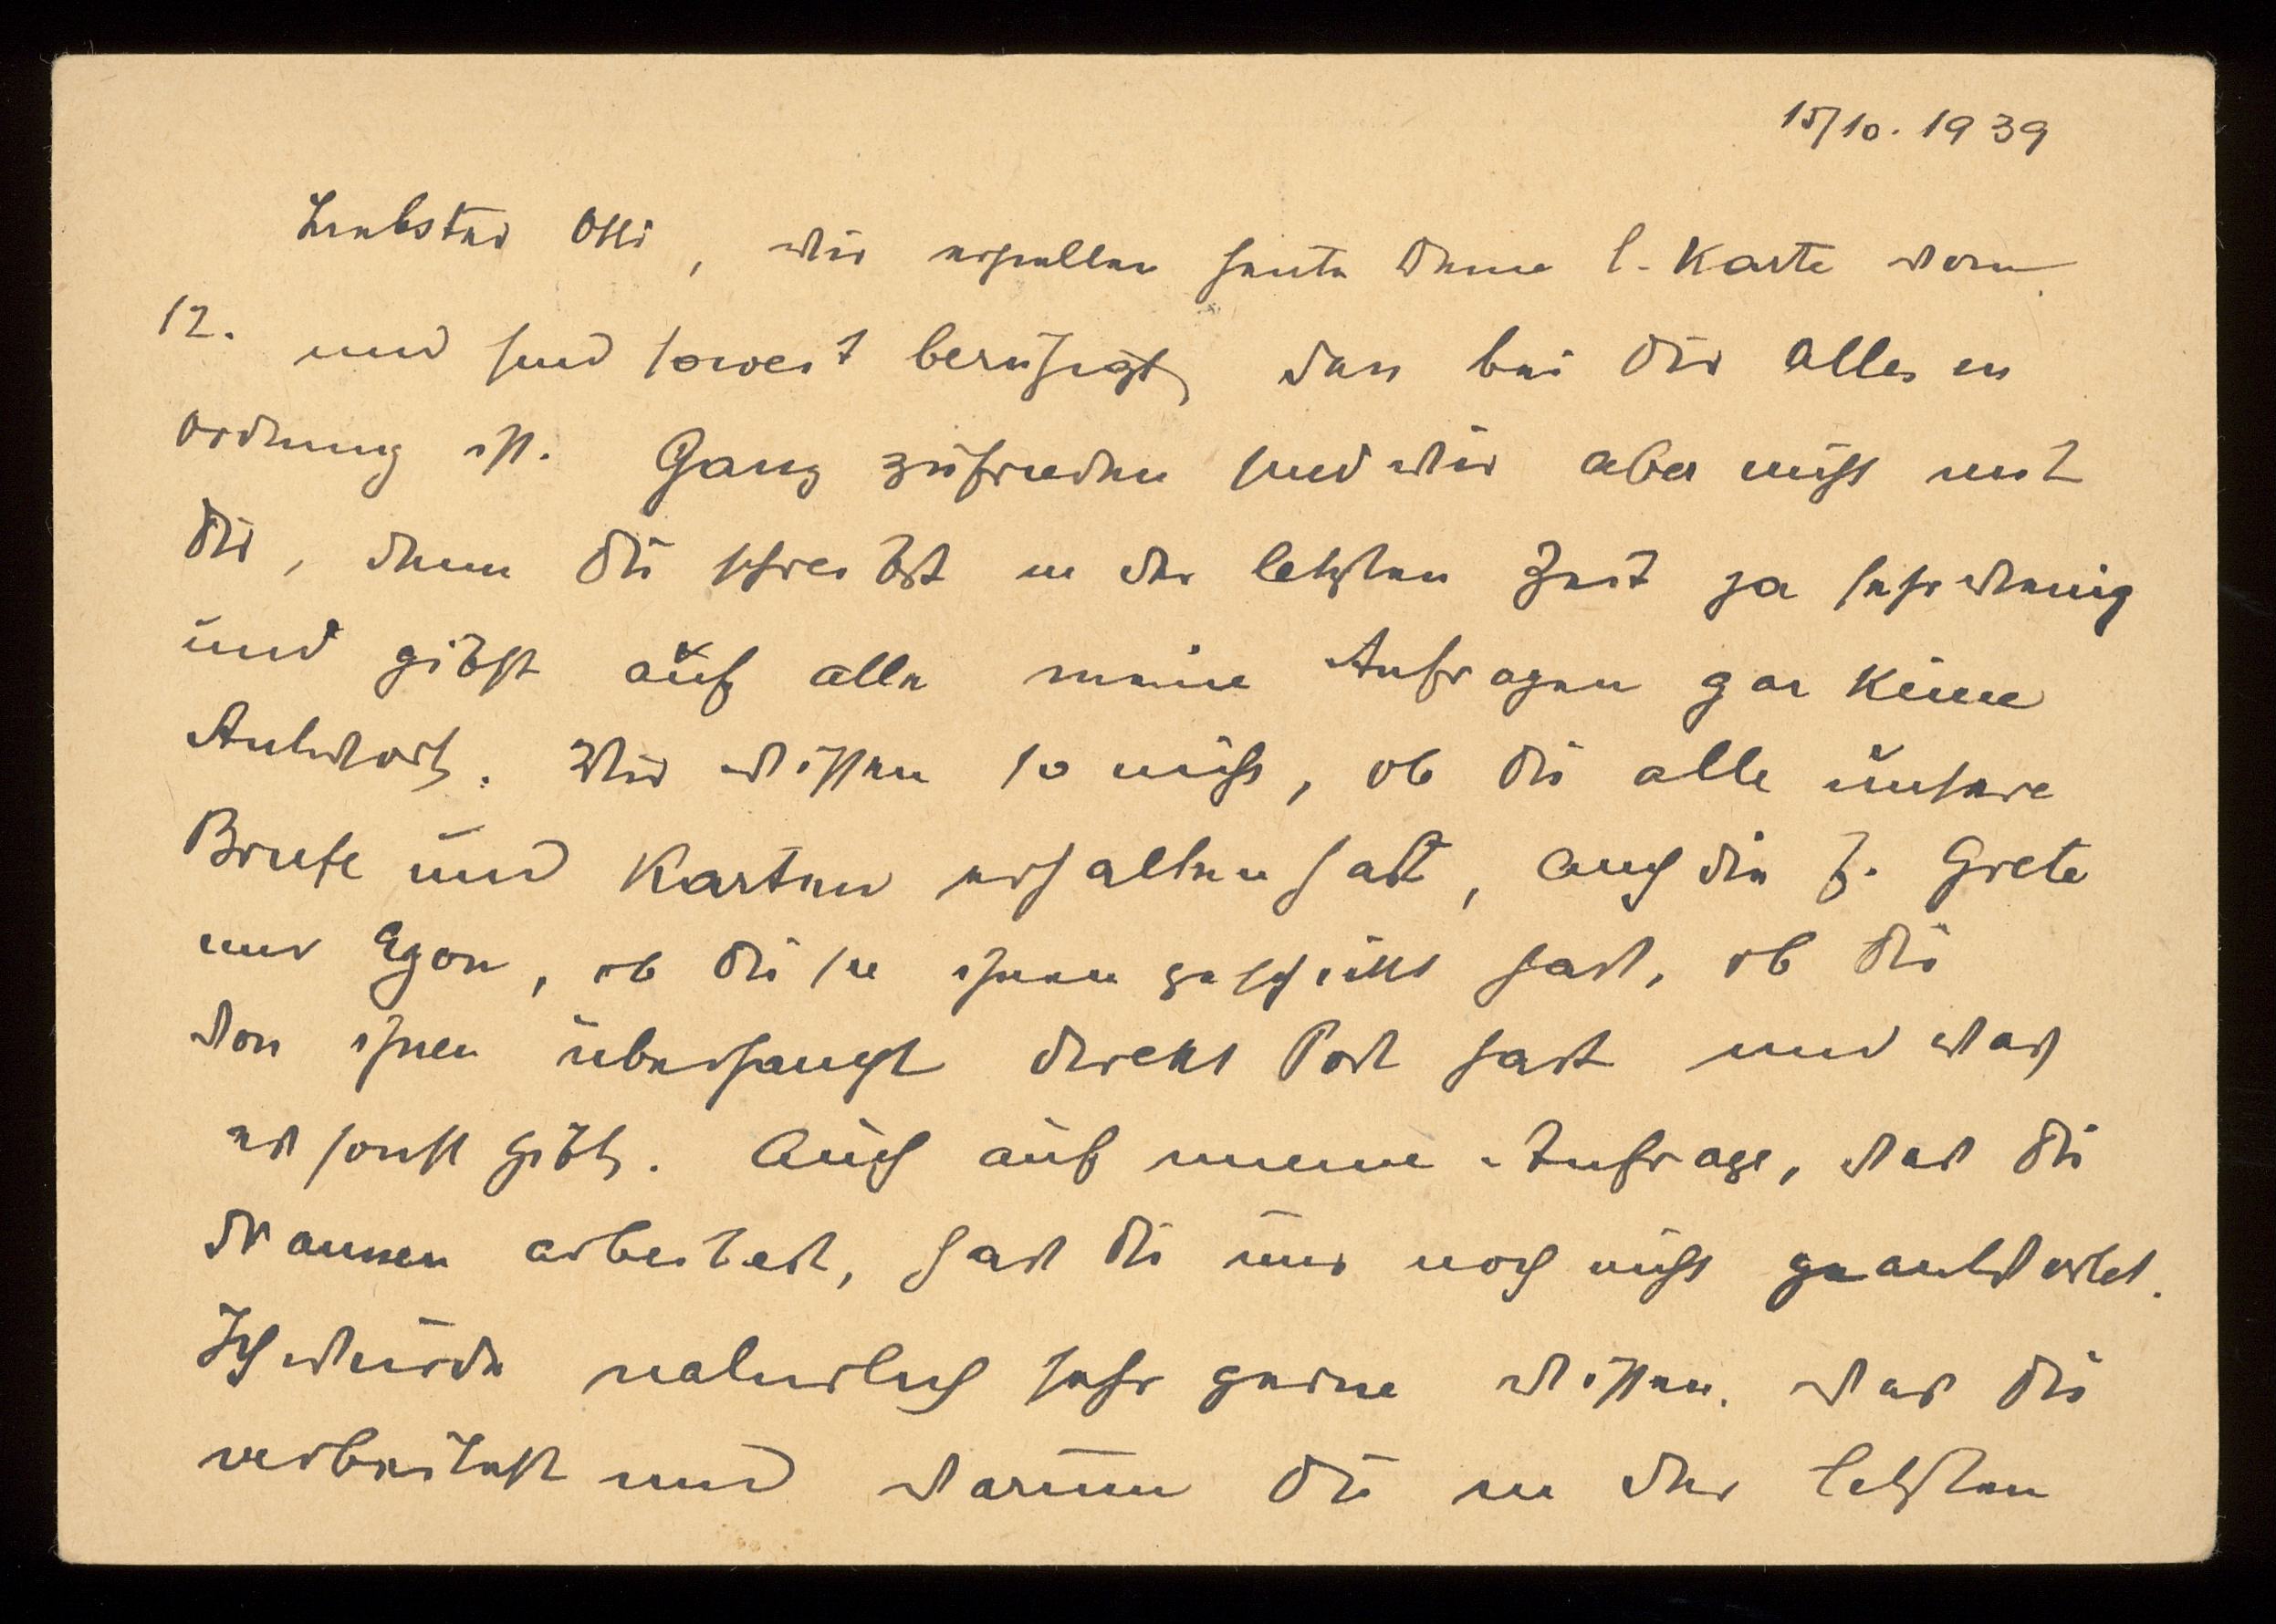 15/10. 1939
Liebster Otti, wir erhielten heute Deine l. Karte vom
12. und sind soweit beruhigt, dass bei Dir alles in
Ordnung ist. Ganz zufrieden sind wir aber nicht mit
Dir, denn Du schreibst in der letzten Zeit ja sehr wenig
und gibst auf alle meine Anfragen gar keine
Antwort. Wir wissen so nicht, ob Du alle unsere
Briefe und Karten erhalten hast, auch die f. Grete
und Egon, ob Du sie ihnen geschickt hast, ob Du
von ihnen überhaupt direkt Post hast und was
es sonst gibt. Auch auf meine Anfrage, was Du
draussen arbeitest, hast Du uns noch nicht geantwortet.
Ich würde natürlich sehr gerne wissen, was Du
arbeitest und warum Du in der letzten